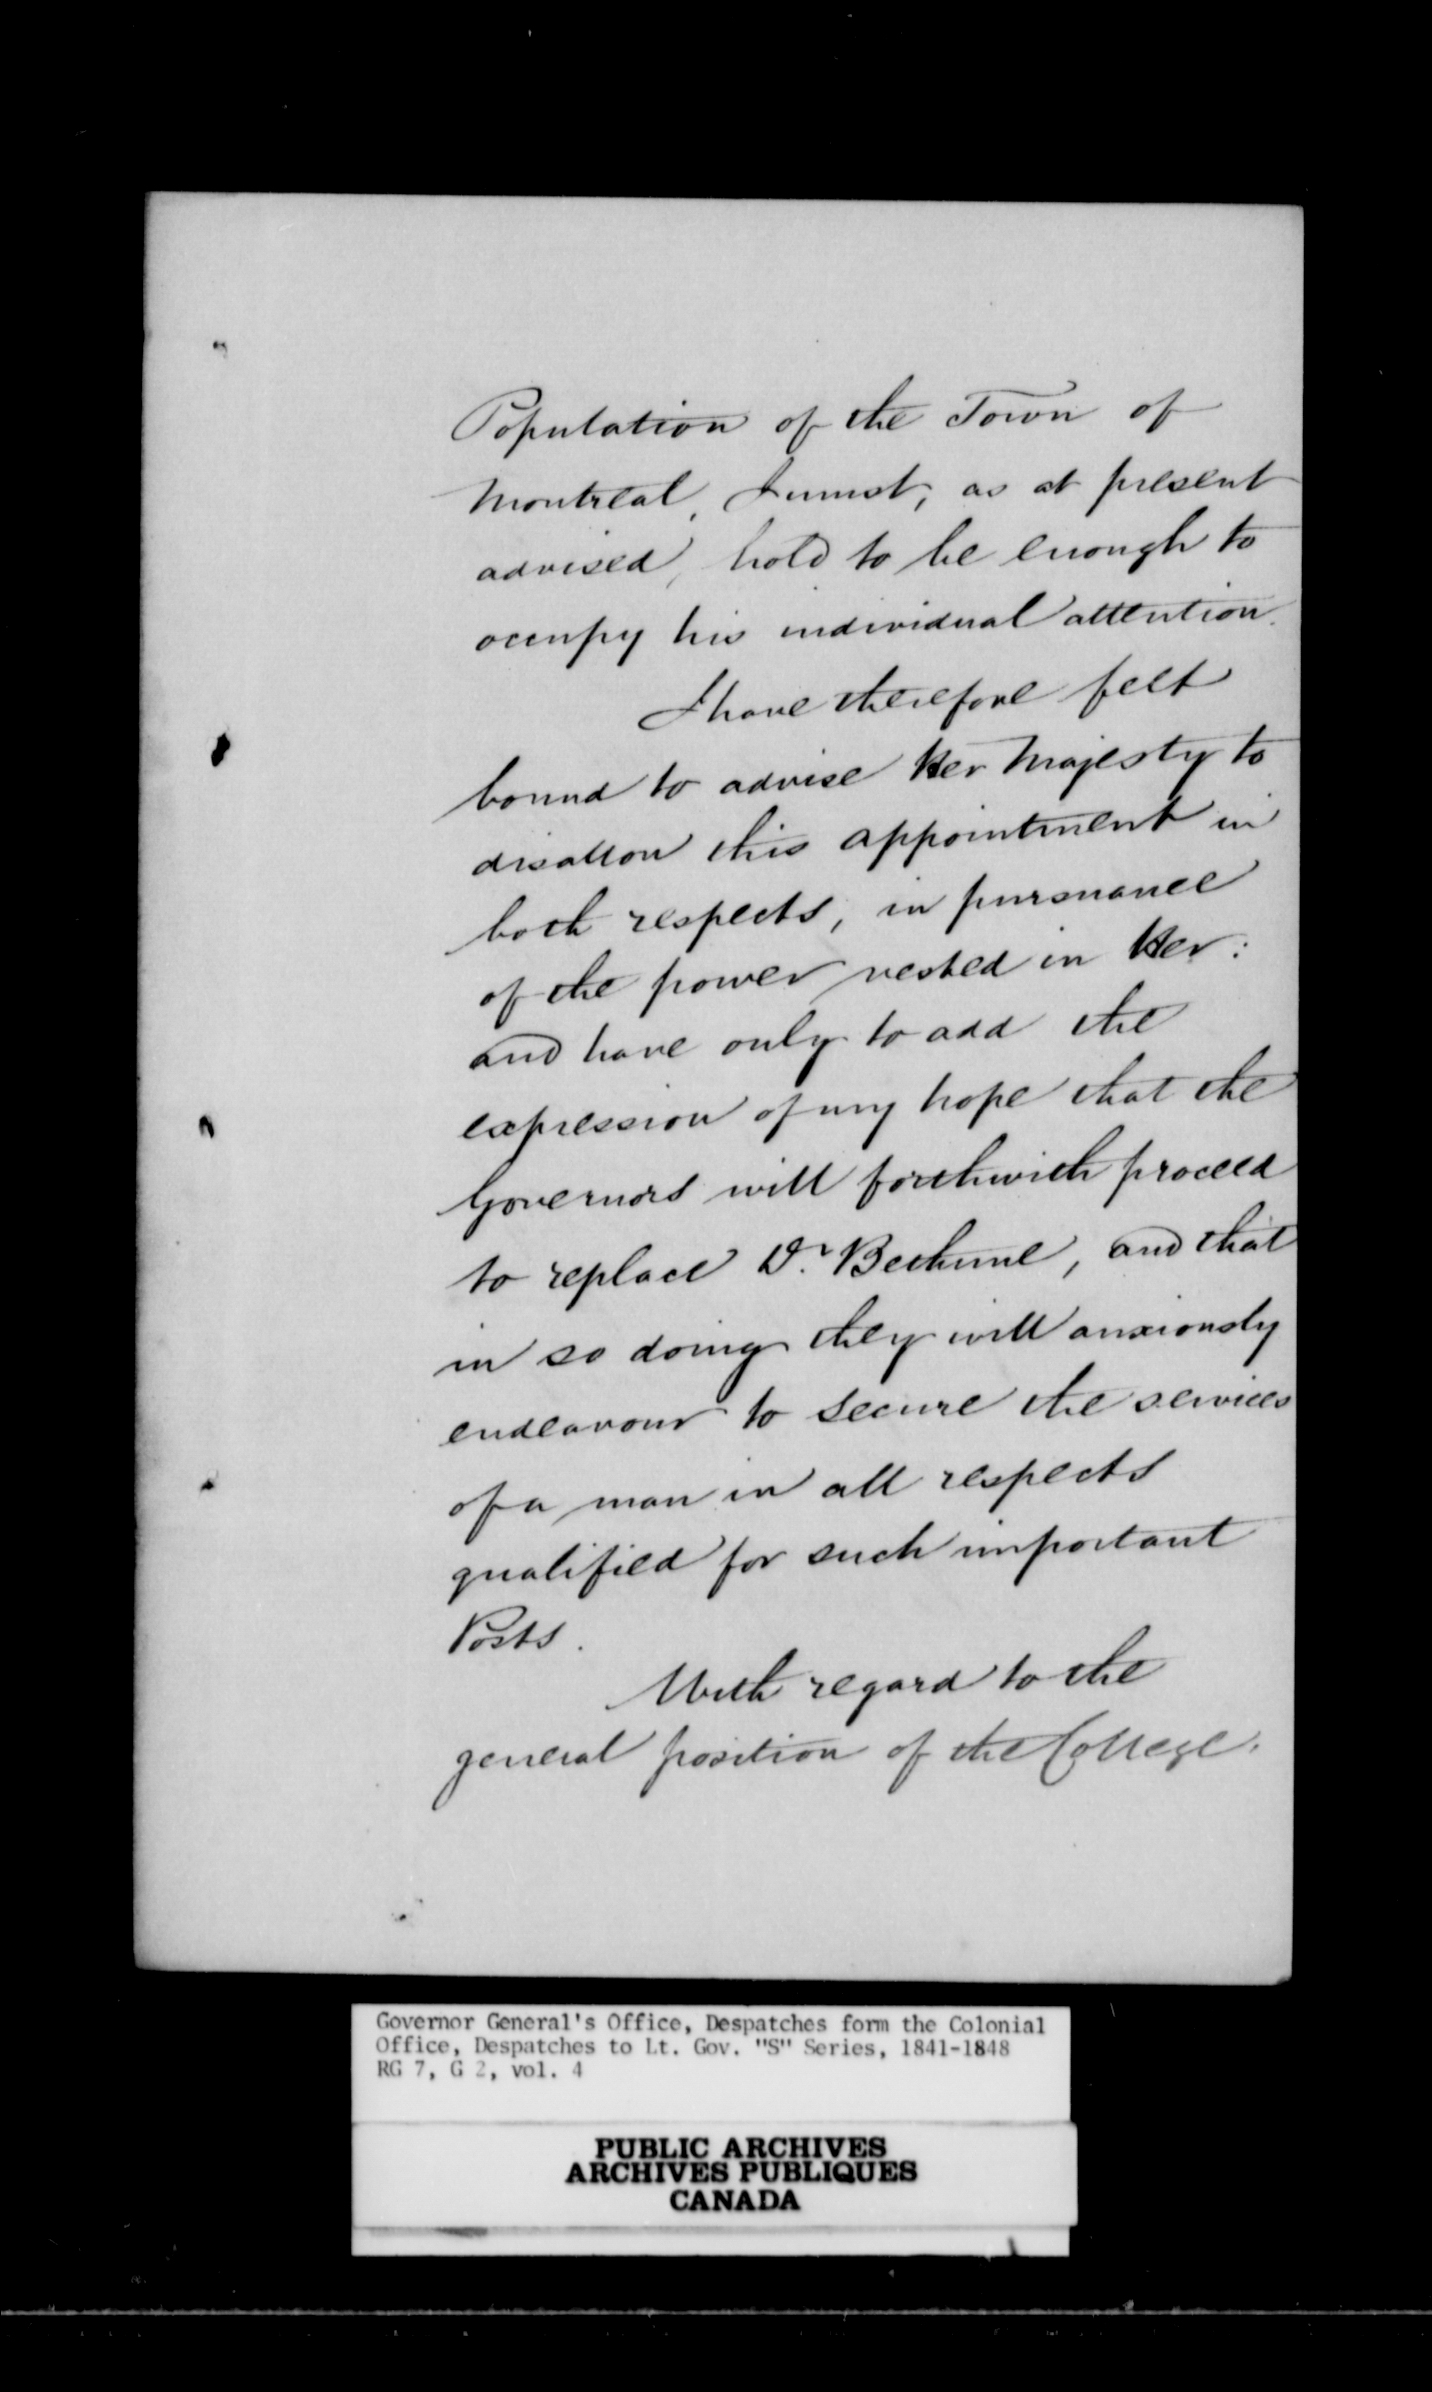 Population of the Town of
Montreal, I must, as at present
advised, hold to be enough to
occupy his individual attention.
I have therefore felt
bound to advise Her Majesty to
disallow this appointment in
both respects, in pursuance
of the power vested in Her:
and have only to add the
expression of my hope that the
Governors will forthwith proceed
to replace Dr. Bethune, and that
in so doing they will anxiously
endeavour to secure the services
of a man in all respects
qualified for such important
Posts.
With regard to the
general position of the College.
Governor General's Office, Despatches form the Colonial
Office, Despatches to Lt. Gov. "S" Series, 1841-1848
RG 7, G 2, vol. 4
PUBLIC ARCHIVES
ARCHIVES PUBLIQUES
CANADA